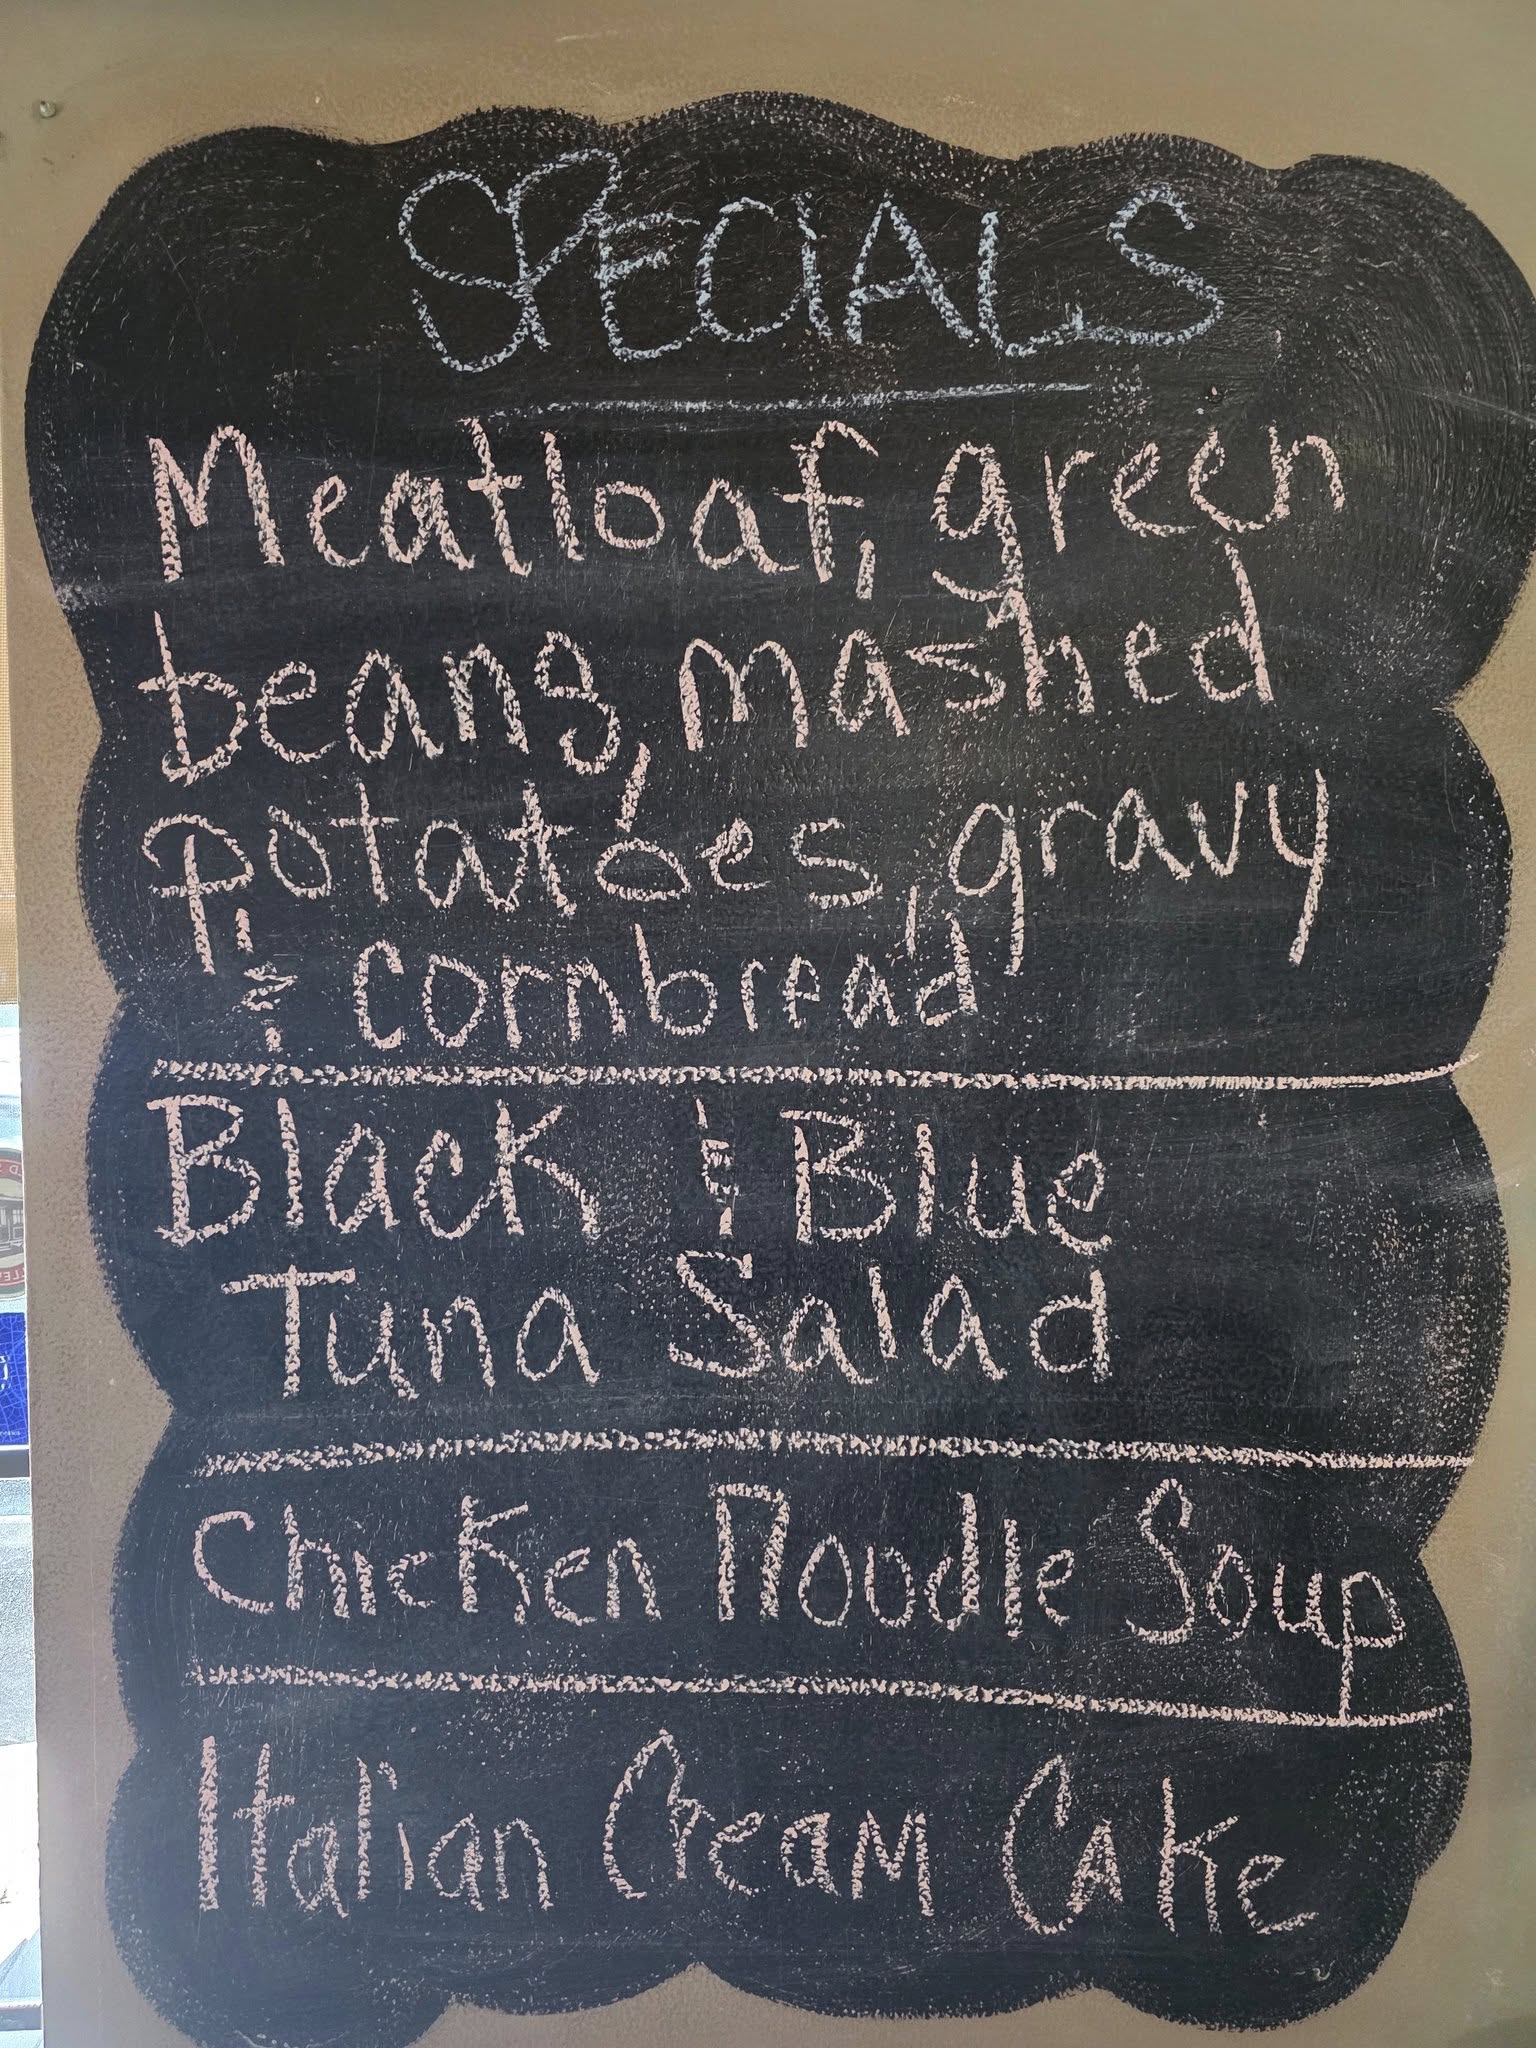 SPECIALS
Meatloaf, green
beans, mashed
potatoes, gravy
& cornbread
Black & Blue
Tuna Salad
Chicken Noodle Soup
Italian Cream Cake